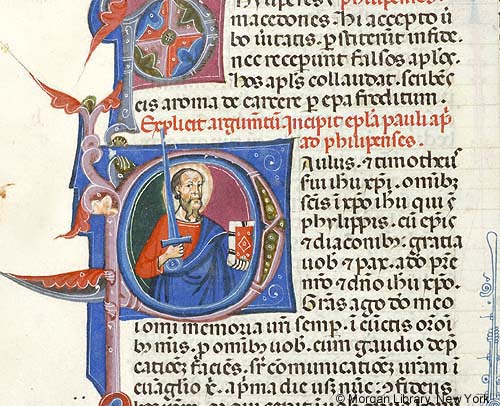 hylipenses philipenses.
macedones. hi accepto ū
bo ūitatis. ꝑstiterūt in fide.
nec recepunt falsos aplōs.
hos aplſ collaudat. scribēs
eis a roma de carcere ꝑ epafroditum.
Explicit argumētū. Incipit epl̄a pauli apl̄
ad philipenses.
Paulus. ⁊ timotheus
ſui ihū xp̄i. om̄ibꝫ
scīs ī xp̄o ihū qui ſ̄
phylippis. cū ep̄ıs
⁊ diaconibꝫ. gratia
uob̄ ⁊ pax. a do pre
nr̄o ⁊ dn̄o ihū xp̄o.
Grās ago dō meo
ī om̄i memoria urī semꝑ. ī cūctis orōi
bꝫ meis. ꝓ om̄ibꝫ uob̄. cum gaudio dep̄
catiōeꝫ faciēs. sr̄ communicatiōe urāi
euāglio xp̄ı. a prima die usꝫ nūc. ⁊ fidens
© Morgan Library, New York